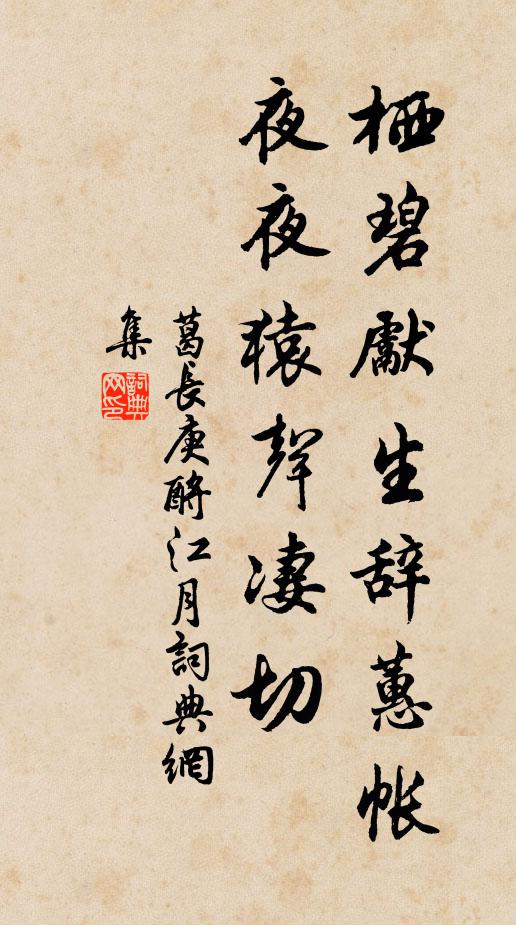 栖碧獻生辞蕙帐
夜夜猿聲淒切
葛長庚酹江月詞典網
集
詞典
网印